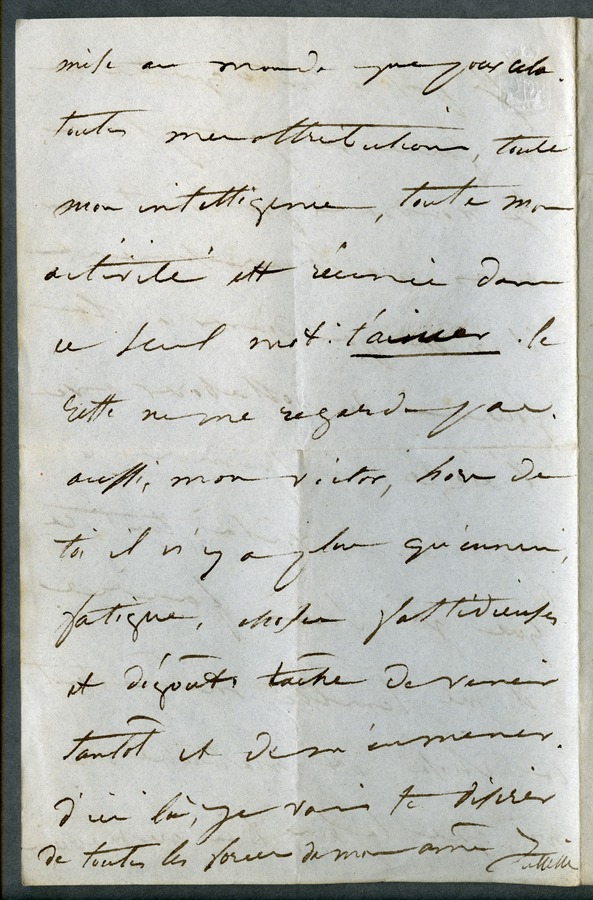 mise au monde que pour cela.
toutes mes attributions, toute
mon intelligence, toute mon
activité est réunie dans
ce seul mot: t'aimer. le
reste ne me regarde pas.
aussi, mon victor, hors de
toi il n'y a plus qu'ennui,
fatigue, choses fastidieuses
et dégoûts. tâche de venir
tantôt et de m'emmener.
d'ici là, je vais te désirer
de toutes les forces de mon âme
Juliette